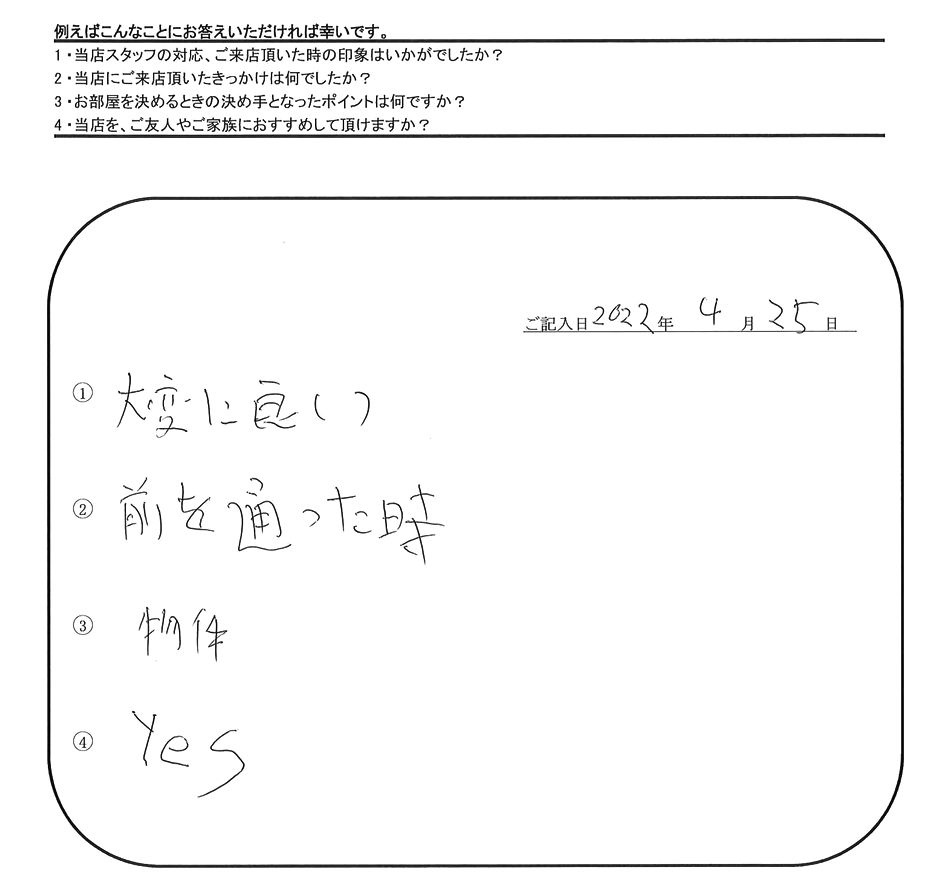 例えばこんなことにお答えいただければ幸いです。
1・当店スタッフの対応、ご来店頂いた時の印象はいかがでしたか？
2・当店にご来店頂いたきっかけは何でしたか？
3・お部屋を決めるときの決め手となったポイントは何ですか？
4・当店を、ご友人やご家族におすすめして頂けますか？
ご記入日2022年 4 月 25 日
① 大変に良い
② 前を通った時
③ 物体
④ Yes